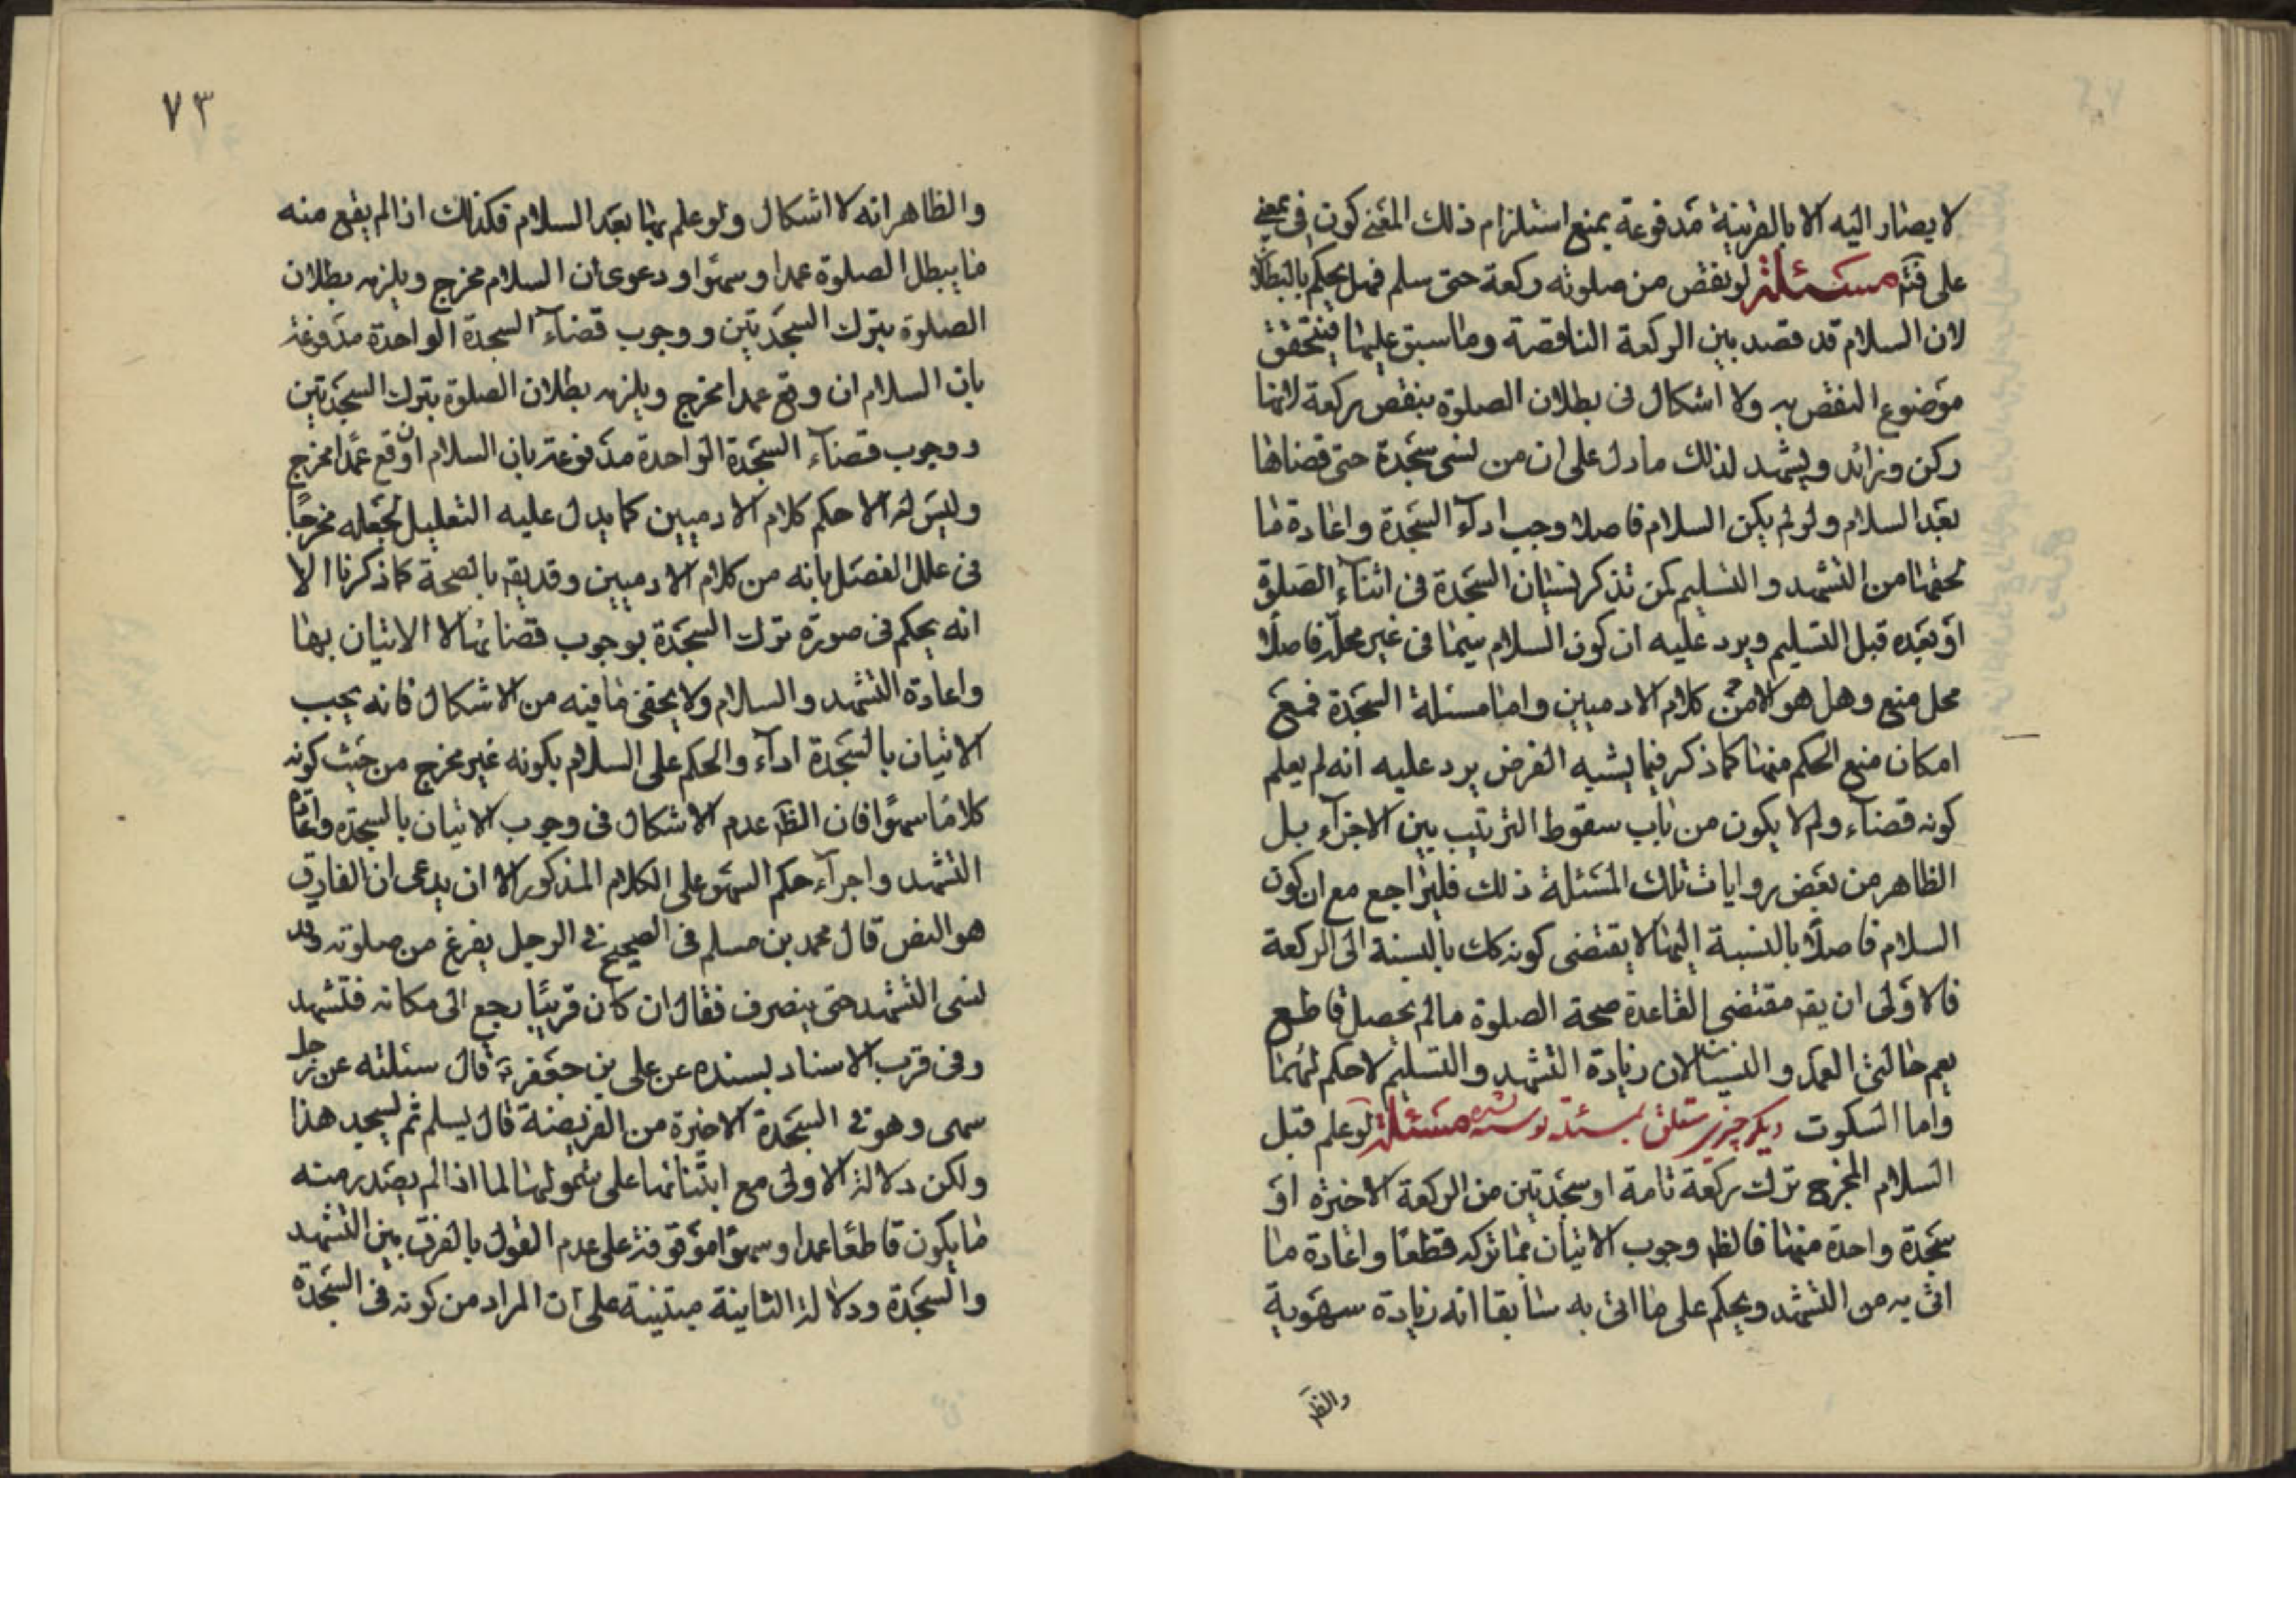 لا يصار اليه الا بالقرينة مدفوعة بمنع استلزام ذلك المعنى كون في بمعنى
على فتم مسئلة لو نقص من صلوته ركعة حتى سلم فهل يحكم بالبطلان
لان السلام قد فصد بين الركعة الناقصة وما سبق عليها فيتحقق
موضوع النقص به ولا اشكال فى بطلان الصلوة بنقص ركعة لانها
ركن وزائد ويشهد لذلك ما دل على ان من نسى سجدة حتى قضاها
بعد السلام ولو لم يكن السلام فاصلا وجب ادآء السجدة واعادة ما
لحقها من التشهد والتسليم كمن تذكر نسيان السجدة فى اثنآء الصلوة
او بعده قبل التسليم ويرد عليه ان كون السلام سيما فى غير محله فاصلا
محل منع وهل هو الا من كلام الادميين واما مسئلة السجدة فمع
امكان منع الحكم منها كما ذكر فيما يشبه الفرض يرد عليه انه لم يعلم
كونه قضآء ولم لا يكون من باب سقوط الترتيب بين الاجزآء بل
الظاهر من بعض روايات تلك المسئلة ذلك فليراجع مع ان كون
السلام فاصلا بالنسبة اليها لا يقتضى كونه كك بالنسبة الى الركعة
فالاولى ان يقه مقتضى القاعدة صحة الصلوة ما لم يحصل قاطع
يعم حالتى العمد والنسيان لان زيادة التشهد والتسليم لا حكم لهما
واما السكوت ديكر چيز مسئله نوشته نشده مسئلة لو علم قبل
السلام المخرج ترك ركعة تامة او سجدتين من الركعة الاخيرة او
سجدة واحدة منها فالظه وجوب الاتيان بما تركه قطعا واعادة ما
اتى به من التشهد ويحكم على ما اتى به سابقا انه زيادة سهوية
والظ
٧٣
والظاهر انه لا اشكال ولو علم بها بعد السلام فكذلك اذا لم يقع منه
ما يبطل الصلوة عمدا وسهوا ودعوى ان السلام مخرج ويلزمه بطلان
الصلوة بترك السجدتين ووجوب قضآء السجدة الواحدة مدفوعة
بان السلام ان وقع عمدا مخرج ويلزمه بطلان الصلوة بترك السجدتين
ووجوب قضآء السجدة الواحدة مدفوعة بان السلام ان وقع عمدا مخرج
وليس له الا حكم كلام الادميين كما يدل عليه التعليل لجعله مخرجا
فى علل الفضل بانه من كلام الادميين وقد يقه بالصحة كما ذكرنا الا
انه يحكم فى صورة ترك السجدة بوجوب قضائها لا الاتيان بها
واعادة التشهد والسلام ولا يخفى ما فيه من الاشكال فانه يجب
الاتيان بالسجدة ادآء والحكم على السلام بكونه غير مخرج من حيث كونه
كلاما سهوا فان الظه عدم الاشكال فى وجوب الاتيان بالسجدة واعادة
التشهد واجرآء حكم السهو على الكلام المذكور الا ان يدعى ان الفارق
هو النص قال محمد بن مسلم فى الصحيح فى الرجل يفرغ من صلوته وقد
نسى التشهد حتى ينصرف فقال ان كان قريبا رجع الى مكانه فتشهد
وفى قرب الاسناد بسنده عن على بن جعفر ع قال سئلته عن رجل
سهى وهو فى السجدة الاخيرة من الفريضة قال يسلم ثم يسجد هذا
ولكن دلالة الاولى مع ابتنائها على شمولها لما اذا لم يصدر منه
ما يكون قاطعا عمدا وسهوا موقوفة على عدم القول بالفرق بين التشهد
والسجدة ودلالة الثانية مبتنية على ان المراد من كونه فى السجدة